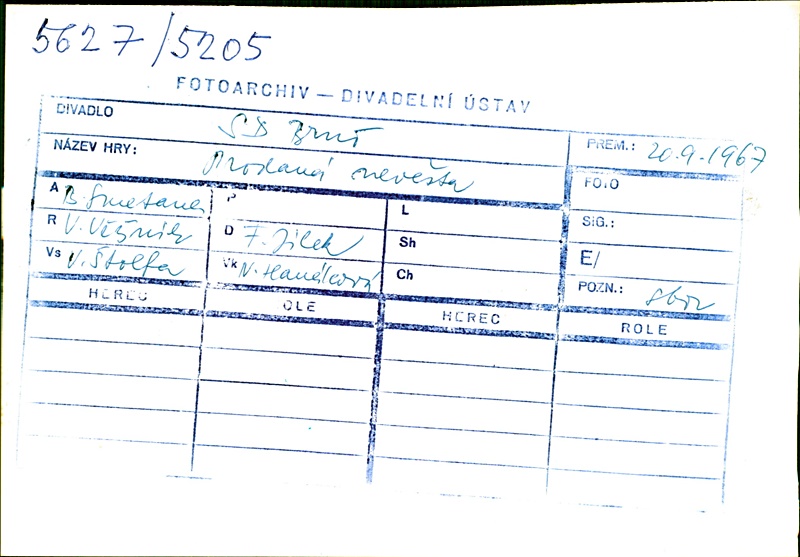 5627/5205
FOTOARCHIV — DIVADELNÍ ÚSTAV
DIVADLO SD Brně PREM.: 20.9.1967
NÁZEV HRY: Prodaná nevěsta FOTO
A B. Smetana P L SIG.:
R V. Věžník D F. Jílek Sh E/
Vs V. Štolfa Vk N. Hanáková Ch POZN.: sbor
HEREC OLE HEREC ROLE